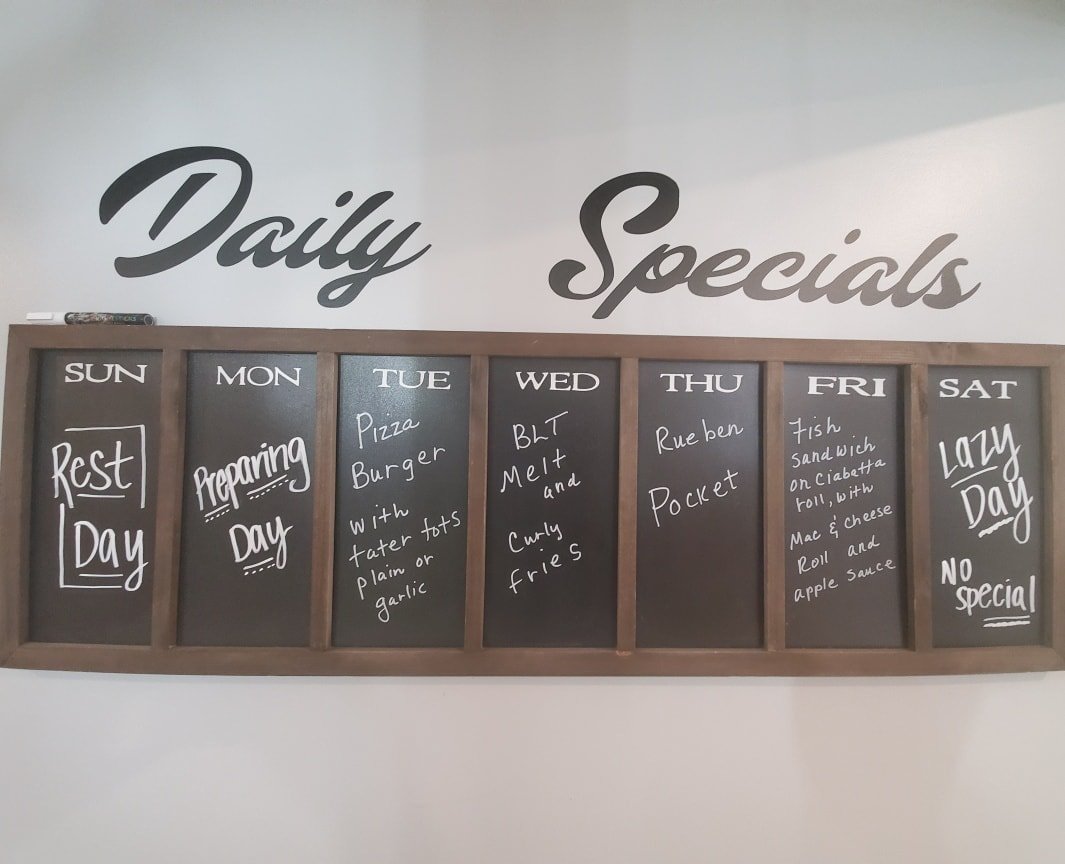 Daily Specials
SUN
Rest
Day
MON
Preparing
Day
TUE
Pizza
Burger
with
tater tots
plain or
garlic
WED
BLT
Melt
and
Curly
fries
THU
Rueben
Pocket
FRI
Fish
Sandwich
on Ciabatta
roll, with
Mac & Cheese
Roll and
apple sauce
SAT
Lazy
Day
No
special